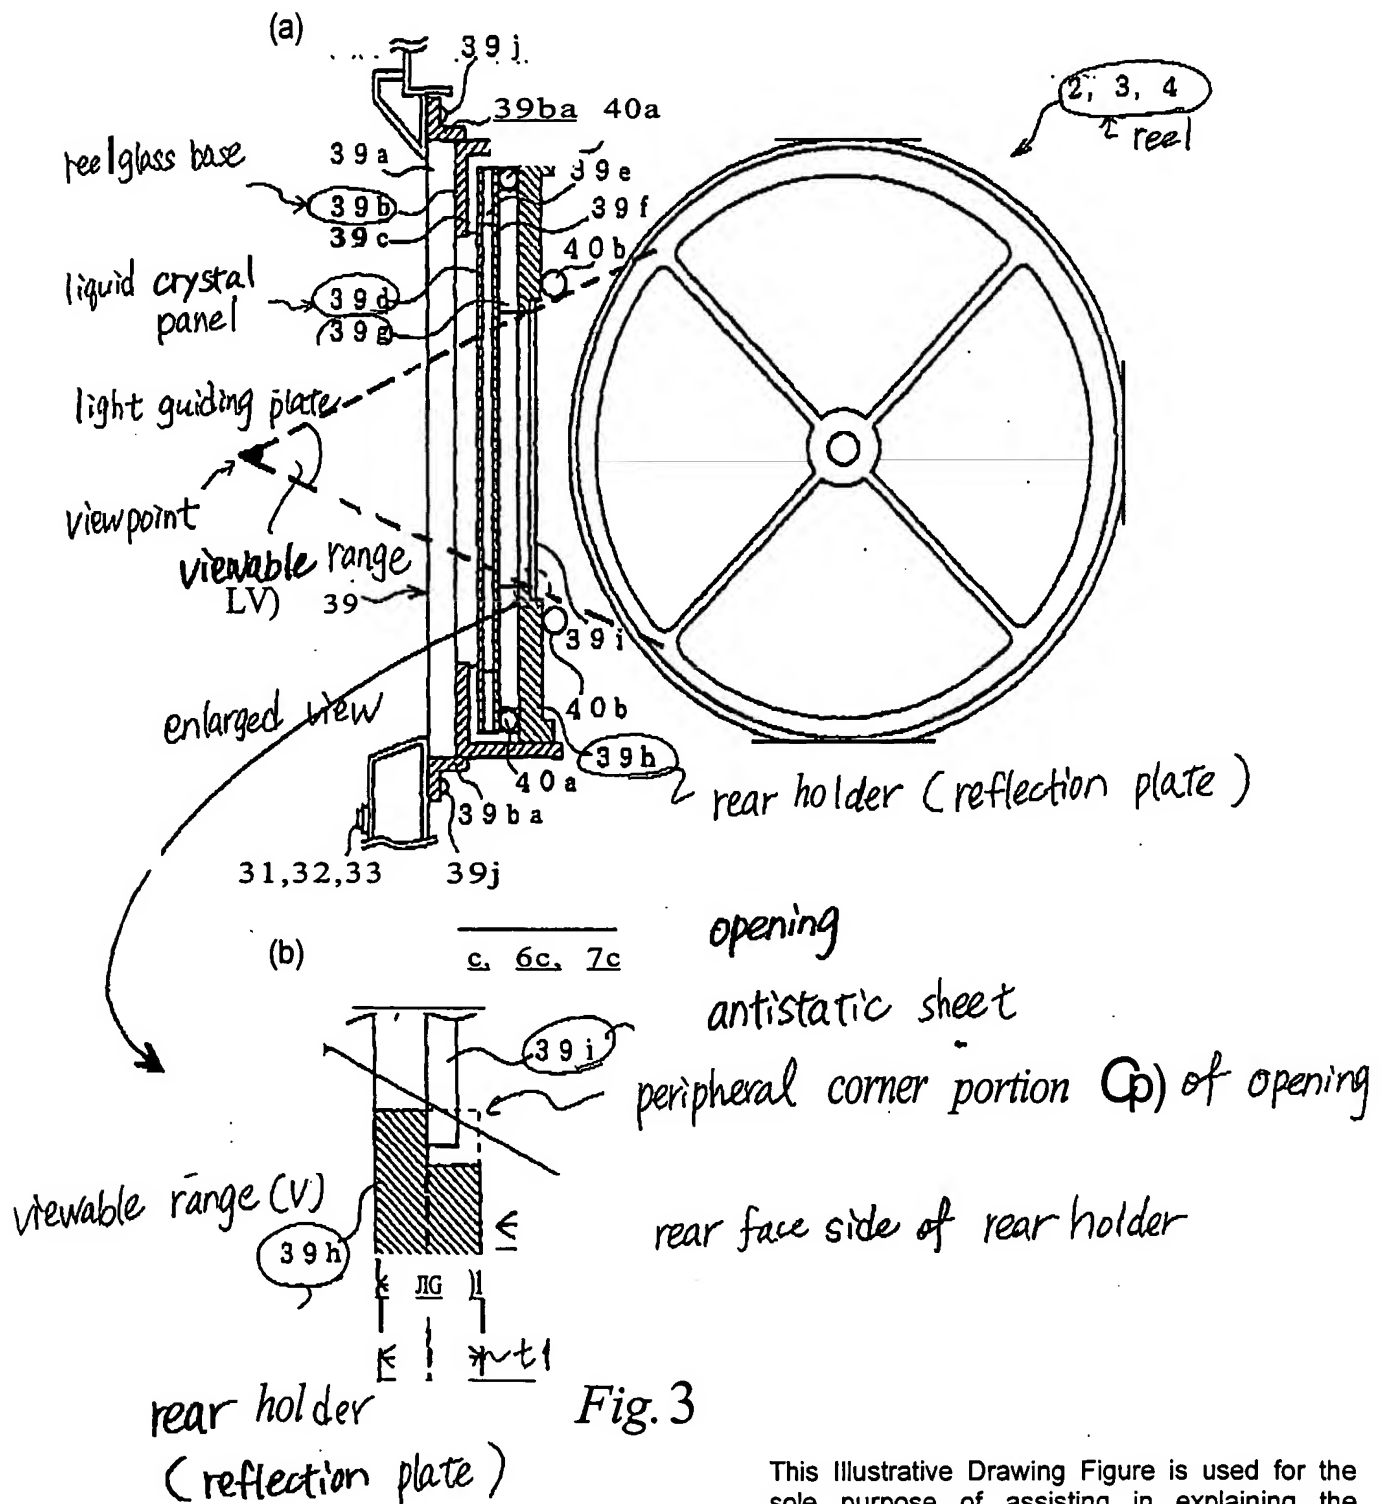 (a)
39j
2, 3, 4
reel
39ba 40a
reel glass base
39a
39e
39b
39f
39c
40b
liquid crystal
panel
39d
39g
light guiding plate
viewpoint
viewable range
LV) 39
39i
enlarged view
40b
39h
40a
rear holder (reflection plate)
39ba
31,32,33 39j
opening
(b)
c, 6c, 7c
antistatic sheet
39i
peripheral corner portion Cp) of opening
viewable range (V)
rear face side of rear holder
39h
t1
rear holder
(reflection plate)
Fig. 3
This Illustrative Drawing Figure is used for the
sole purpose of assisting in explaining the